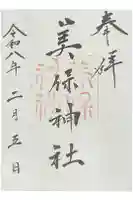 奉拝
美保神社
令和八年二月五日